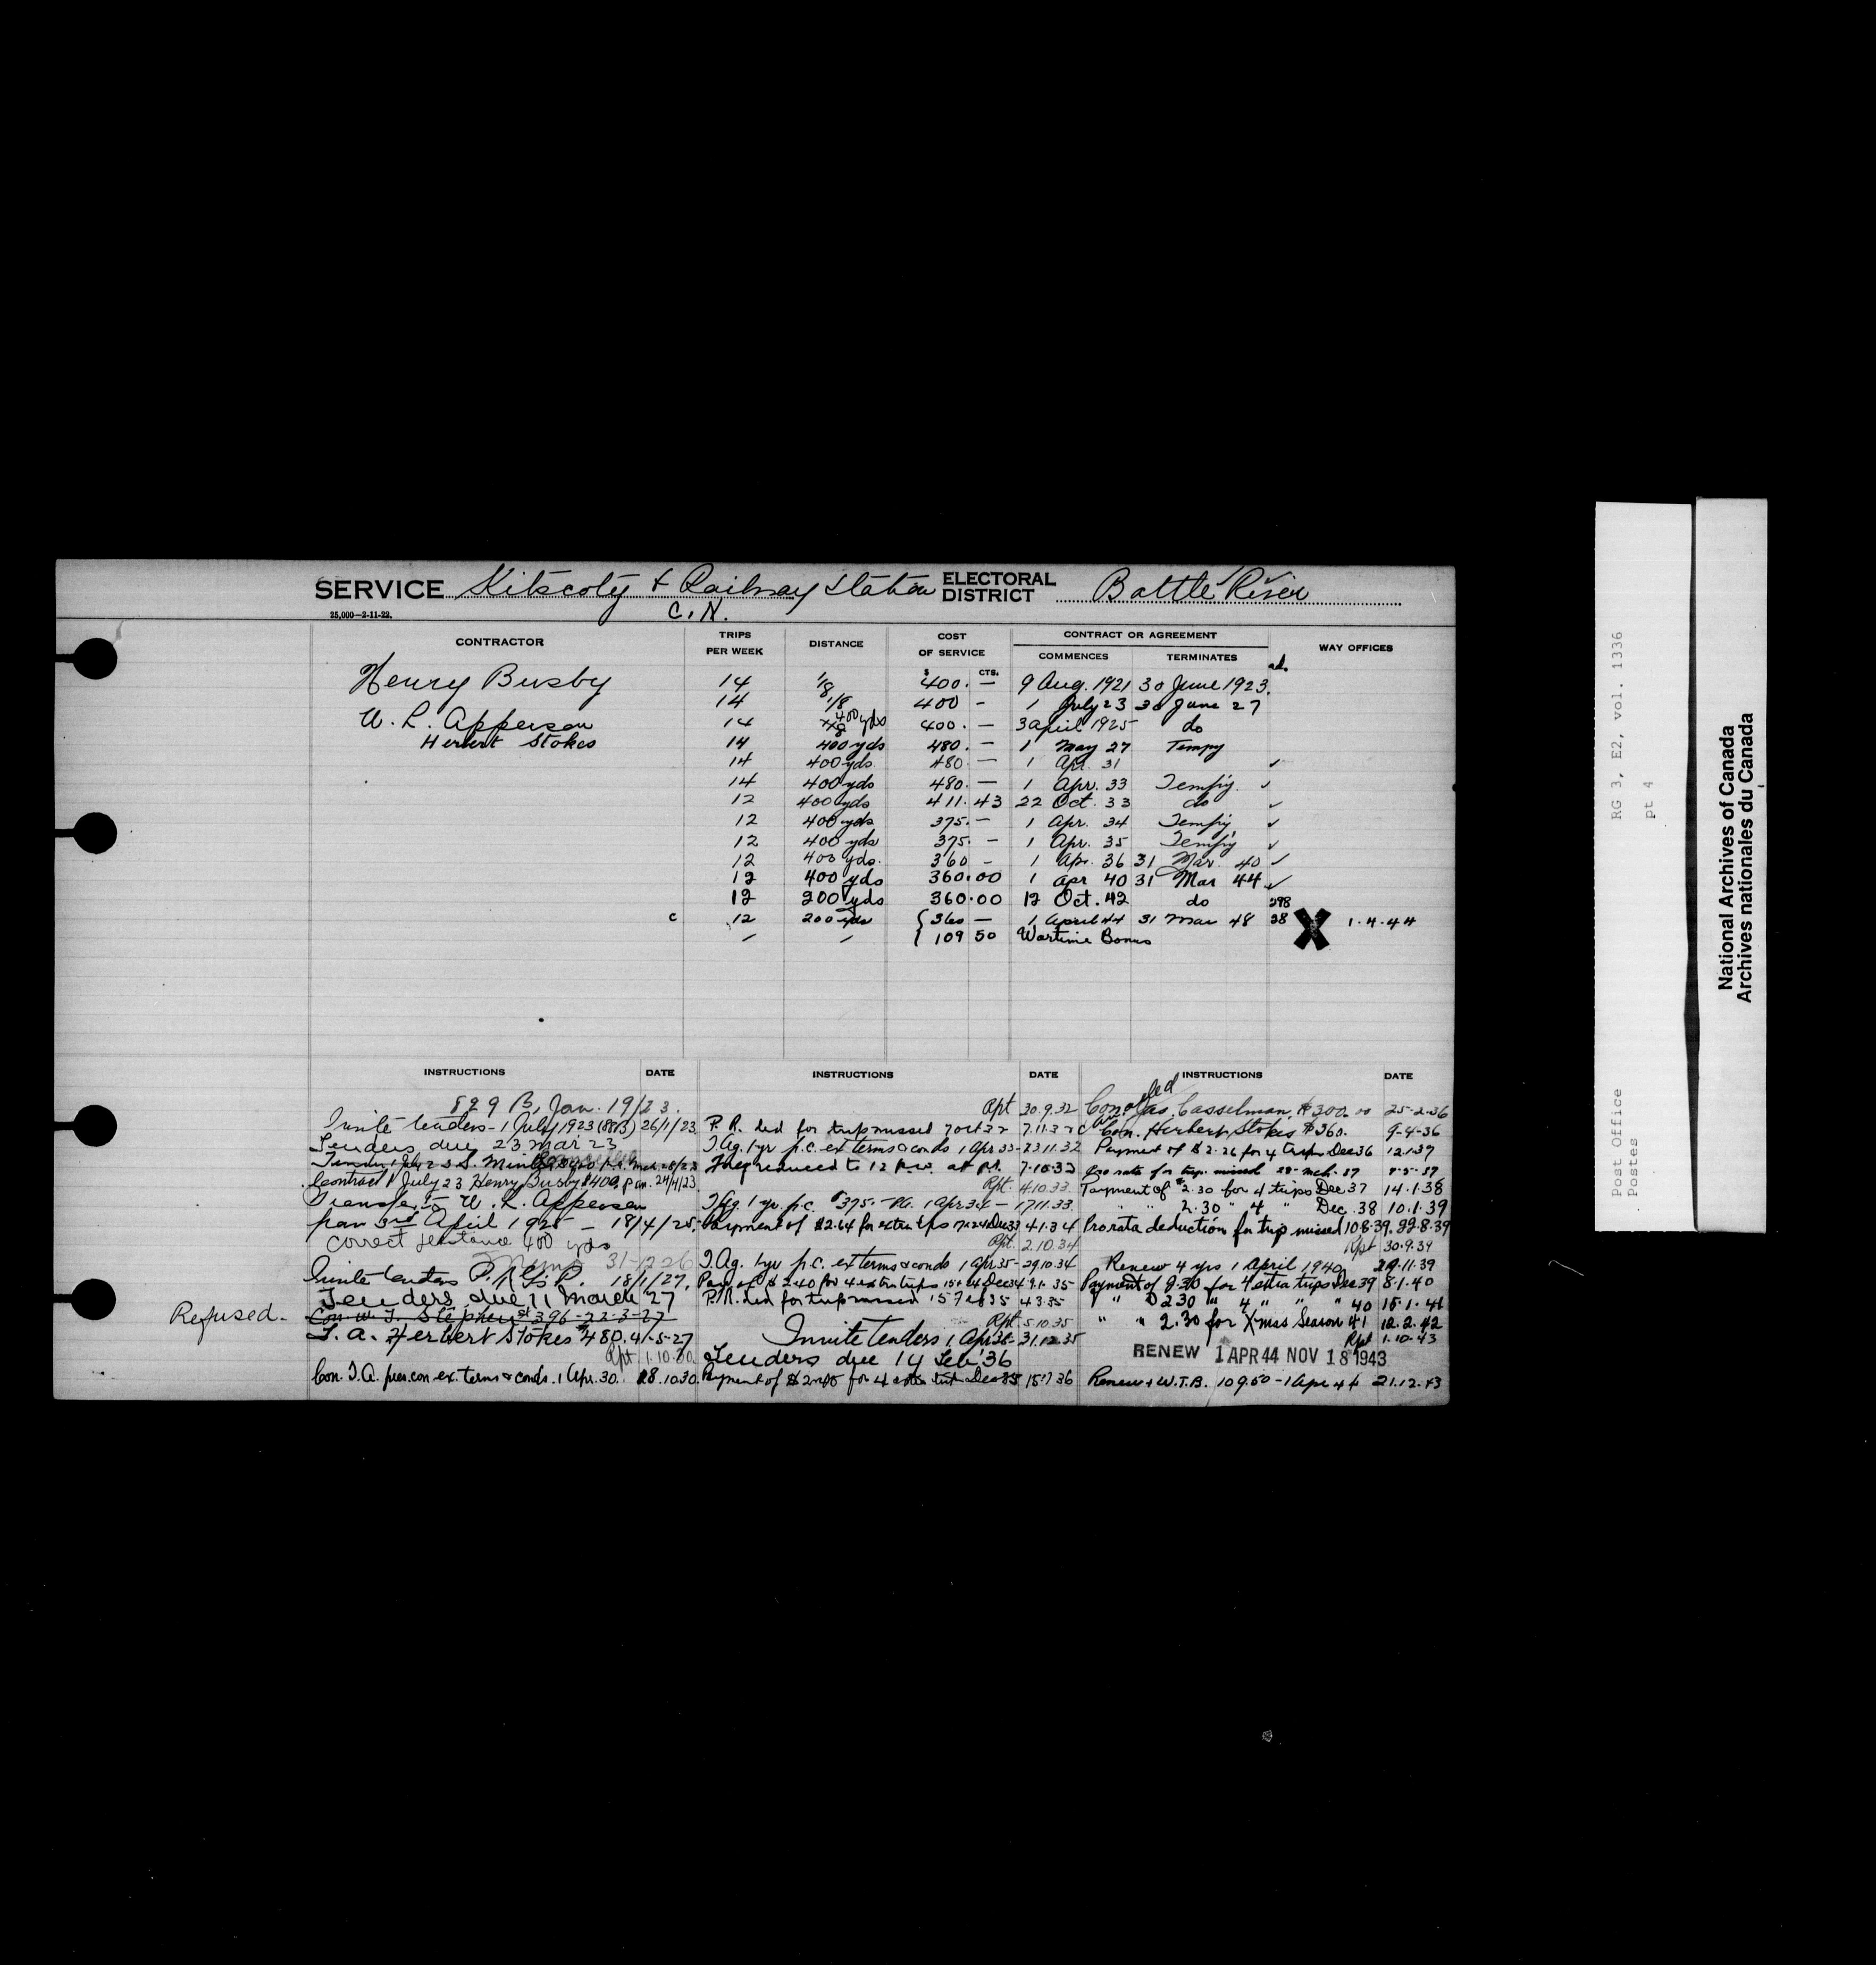 SERVICE Kitscoty & Railway Station ELECTORAL DISTRICT Battle River
25,000—2-11-22.
C.N.
CONTRACTOR TRIPS PER WEEK DISTANCE COST OF SERVICE CONTRACT OR AGREEMENT WAY OFFICES
COMMENCES TERMINATES
$ CTS.
Henry Busby 14 1/8 400. — 9 Aug. 1921 30 June 1923.
14 1/8 400 - 1 July 23 30 June 27
W. L. Apperson 14 400 yds 400. — 3 april 1925 do
Herbert Stokes 14 400 yds 480. — 1 May 27 Tempy
14 400 yds. 480 — 1 Apr. 31 ✓
14 400 yds 480. — 1 Apr. 33 Tempy. ✓
12 400 yds 411.43 22 Oct. 33 do ✓
12 400 yds 375. — 1 Apr. 34 Tempy ✓
12 400 yds 375. — 1 Apr. 35 Tempy ✓
12 400 yds. 360 - 1 Apr. 36 31 Mar. 40 ✓
12 400 yds 360.00 1 Apr 40 31 Mar 44 ✓
12 200 yds 360.00 12 Oct. 42 do 298
c 12 200 yds { 360 — 1 April 44 31 Mar 48 28 X 1.4.44
— — { 109 50 Wartime Bonus
INSTRUCTIONS DATE INSTRUCTIONS DATE INSTRUCTIONS DATE
829 B, Jan. 19/23.
Invite tenders - 1 July 1923 26/1/23
Tenders due 23 Mar 23
Contract 1 July 23 Henry Busby $400 24/4/23
Transfer to W. L. Apperson
from 3rd April 1925 — 18/4/25.
Correct distance 400 yds
31-12-26
Invite tenders 18/1/27.
Tenders due 11 March 27
Refused. Con. W. J. Stephens $396 - 22-3-27
T. A. Herbert Stokes $480. 4-5-27
Rpt 1.10.30
Con. T.A. pres. con ex. terms & conds. 1 Apr. 30. 28.10.30
Rpt 30.9.32
P. R. ded for trip missed 7 Oct 32 7.11.32
T Ag. 1 yr p.c. ex terms & conds 1 Apr 33 - 23.11.32
Freq reduced to 12 7.10.33
Rpt. 4.10.33
T Ag. 1 yr. p.c. $375. — 1 Apr 34 — 17.11.33
Payment of $2.64 for extra trips 17.24 Dec 33 4.1.34
Rpt. 2.10.34
T. Ag. 1 yr p.c. ex terms & conds 1 Apr 35 - 29.10.34
Pay. of $2.40 for 4 extra trips Dec 34 9.1.35
P.R. ded for trip missed 15 Feb 35 4.3.35
Rpt 5.10.35
Invite tenders 1 Apr 36 - 31.12.35
Tenders due 14 Feb '36
Payment of for 4 extra trips Dec 35 15.1.36
Cancelled
Con. Jas. Casselman, $300.00 25-2-36
Con. Herbert Stokes $360. 9-4-36
Payment of $2.26 for 4 trips Dec 36 12.1.37
Pro rata for trip missed 28 - Mch. 37
Payment of $2.30 for 4 trips Dec 37 14.1.38
" " 2.30 " 4 " Dec. 38 10.1.39
Pro rata deduction for trip missed 10.8.39. 22.8.39
Rpt 30.9.39
Renew 4 yrs 1 April 1940 29.11.39
Payment of 2.30 for 4 extra trips Dec 39 8.1.40
" " 2.30 " 4 " " " 40 15.1.41
" " 2.30 for Xmas Season 41 12.2.42
Rpt 1.10.43
RENEW 1 APR 44 NOV 18 1943
Renew & W.T.B. 109.50 - 1 Apr 44 21.12.43
Post Office
Postes
RG 3, E2, vol. 1336
pt 4
National Archives of Canada
Archives nationales du Canada